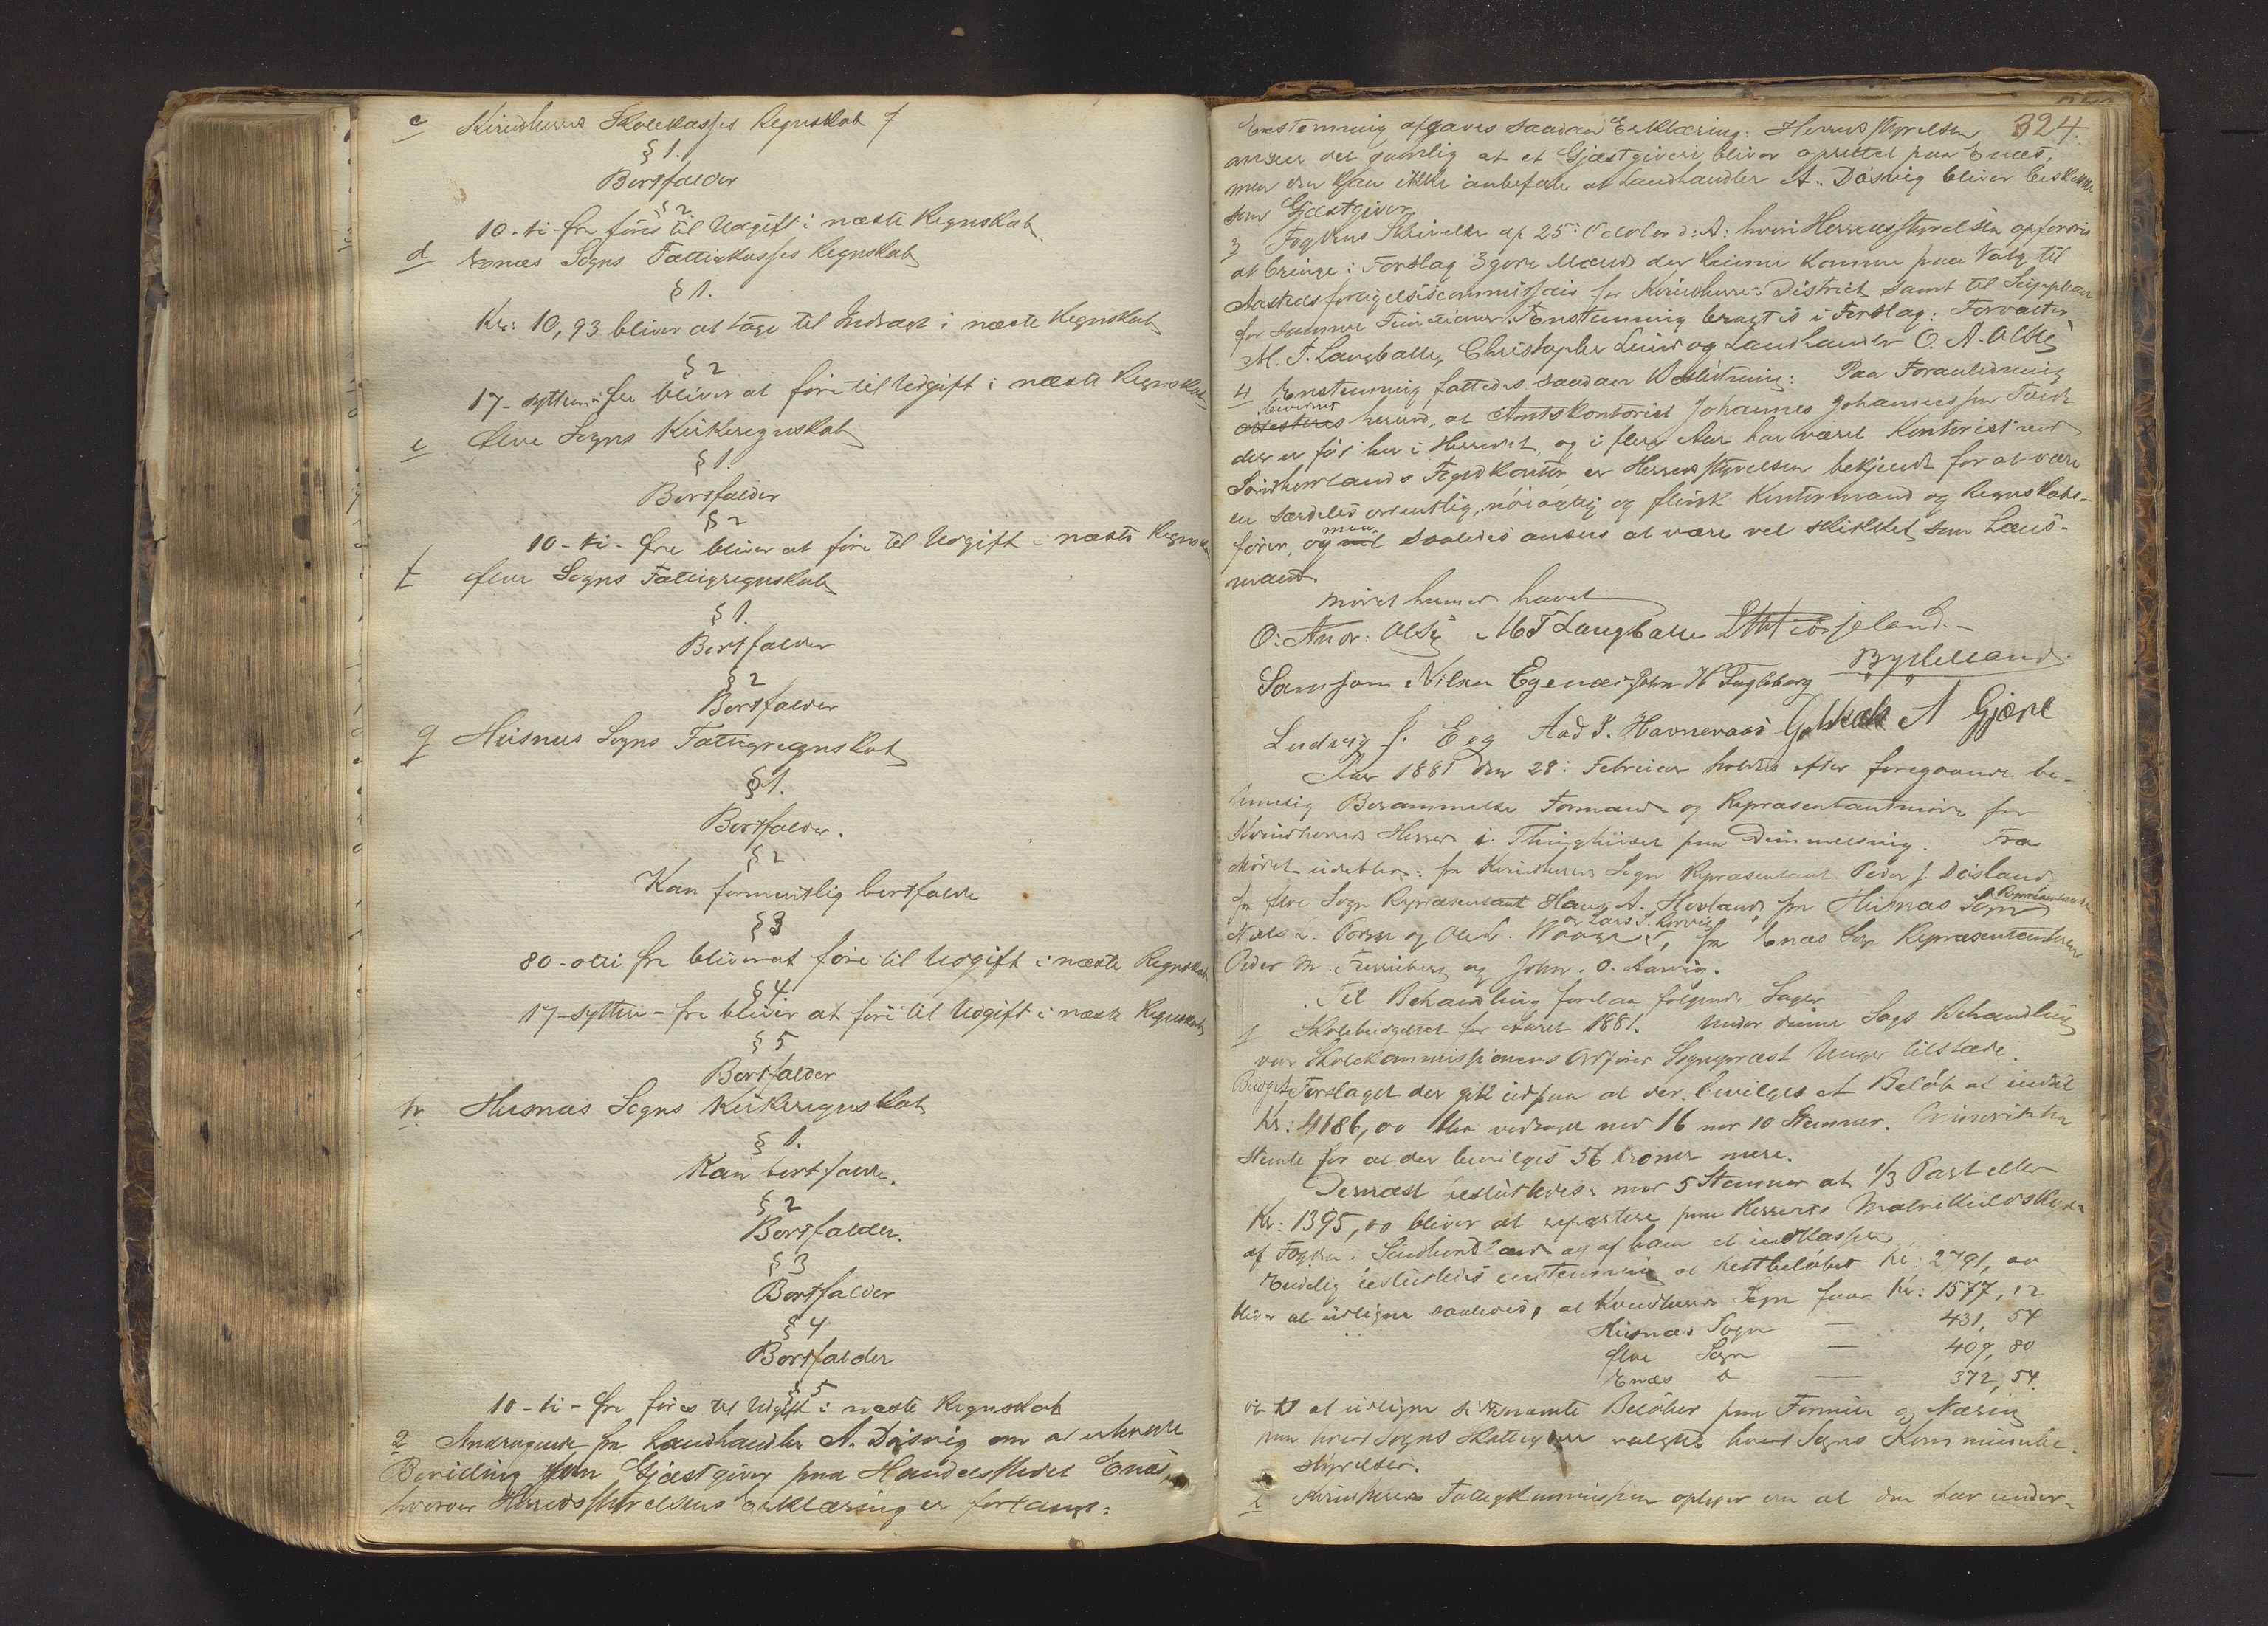 c Kvindherreds Skolekasses Regnskab
§ 1.
Bortfalder
§ 2
10-ti-Øre føres til Udgift i næste Regnskab
d Enæs Sogns Fattigkasses Regnskab
§ 1.
Kr: 10,93 bliver at tage til Indtægt i næste Regnskab
§ 2
17-sytten-Øre bliver at føre til Udgift i næste Regnskab
e Ølve Sogns Kirkeregnskab
§ 1.
Bortfalder
§ 2
10-ti-Øre bliver at føre til Udgift i næste Regnskab
f Ølve Sogns Fattigregnskab
§ 1.
Bortfalder
§ 2
Bortfalder
g Husnæs Sogns Fattigregnskab
§ 1.
Bortfalder.
§ 2
Kan formentlig bortfalde
§ 3
80-otti Øre bliver at føre til Udgift i næste Regnskab.
§ 4.
17-sytten-Øre bliver at føre til Udgift i næste Regnskab
§ 5
Bortfalder
h Husnæs Sogns Kirkeregnskab
§ 1.
Kan bortfalde.
§ 2
Bortfalder.
§ 3
Bortfalder
§ 4
Bortfalder
§ 5
10-ti-Øre føres til Udgift i næste Regnskab
2 Andragende fra Landhandler A. Døsvig om at erholde
Bevilling som Gjæstgiver paa Handelsstedet Enæs,
hvorover Herredsstyrelsens Erklæring er forlangt:
324.
Enstemmig afgaves saadan Erklæring: Herredsstyrelsen
anseer det gavnlig at et Gjæstgiveri bliver oprettet paa Enæs,
men den kan ikke anbefale at Landhandler A. Døsvig bliver beskikket
som Gjæstgiver.
3 Fogdens Skrivelse af 25: October d: A: hvori Herredsstyrelsen opfordres
at bringe i Forslag 3 gode Mænd der kunne komme paa Valg til
Aastedsforligelsescommissair for Kvindherreds District samt til Suppleant
for samme Functioner. Enstemmig bragtes i Forslag: Forvalter
M. T. Langballe, Christopher Lund og Landhandler O. A. Olsen
4 Enstemmig fattedes saadan Beslutning: Paa Foranledning
bevidnes
attesteres herved, at Amtskontorist Johannes Johannessen
der er født her i Herredet og i flere Aar har været Kontorist ved
Søndhordlands Fogedkontor er Herredsstyrelsen bekjendt for at være
en særdeles ordentlig, nøiagtig og flink Kontormand og Regnskabs-
fører, og maa saaledes ansees at være vel skikket som Læns-
mand
Mødet hermed hævet
O: Andr: Olsen M T Langballe
Samson Nilsen Egenæs John H Fugleberg
Ludvig J. Eeg Aad P. Havneraas A Gjøre
Aar 1881 den 28: Februar holdtes efter foregaaende be-
timelig Berammelse Formands og Repræsentantmøde for
Kvindherreds Herred i Thinghuset paa Dimmelsvig. Fra
Mødet udeblev: fra Kvindherreds Sogn Repræsentant Peder J.
fra Ølve Sogn Repræsentant Hans A. Hovland fra Husnæs Sogn Repræsentanterne
og Lars S. fra Enæs Sogn Repræsentanterne
Peder M. og John. O. Aarvig.
Til Behandling forelaa følgende Sager
1 Skolebudgettet for Aaret 1881. Under denne Sags Behandling
var Skolekommissionens Ordfører Sognepræst Unger tilstæde.
Budgetforslaget der gik ud paa at der bevilges et Beløb at indtil
Kr: 4186,00 blev vedtaget med 16 mod 10 Stemmer. Minoriteten
stemte for at der bevilges 56 kroner mere.
Dernæst besluttedes mod 5 Stemmer at 1/3 Part eller
Kr: 1395,00 bliver at repartere paa Herredets Matrikulskyld
af Fogden i Søndhordland og af ham at indkasseres
Endelig besluttedes enstemmig at Restbeløbet Kr: 2791,00
bliver at udligne saaledes, at Kvindherreds Sogn faar Kr: 1577,12
Husnæs Sogn — 431,54
Ølve Sogn — 409,80
Enæs d — 372,54.
at udligne sidstnævnte Beløber paa Formue og Næring
paa hvert Sogns Skatteydere hvert Sogns Kommunebe-
styrelser.
2 Kvindherreds Fattigkommission oplyser om at den har under-